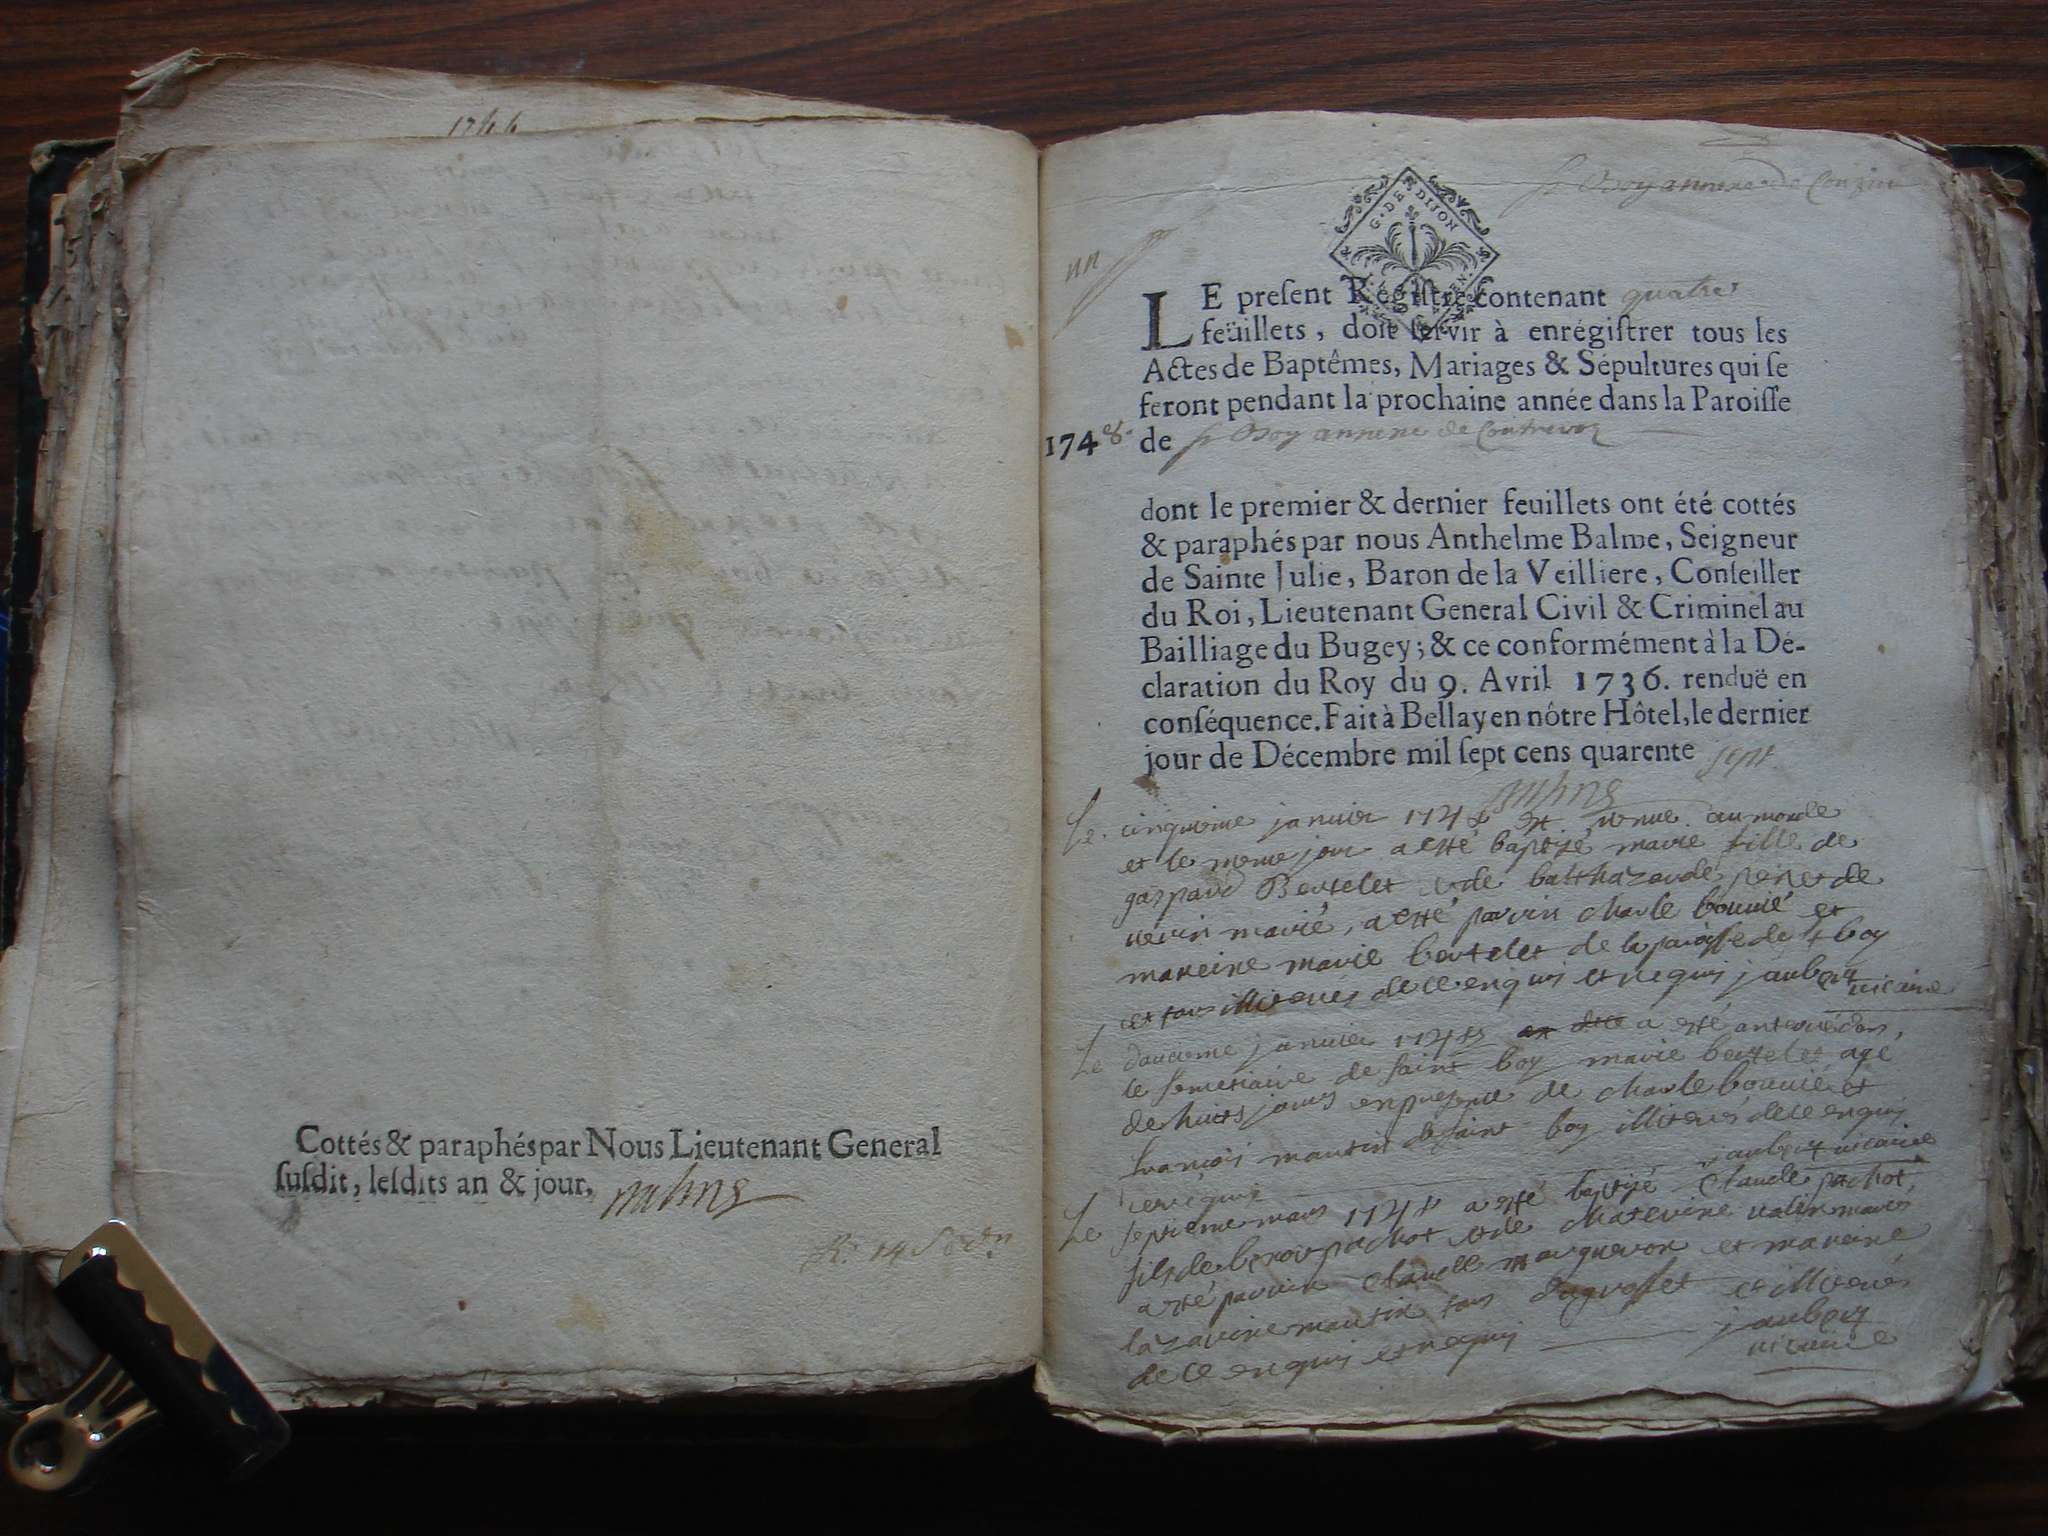 Cottés & paraphés par Nous Lieutenant General
ſuſdit, leſdits an & jour,
G. DE DIJON
LE preſent Régiſtre contenant quatre
feüillets, doit ſervir à enrégiſtrer tous les
Actes de Baptêmes, Mariages & Sépultures qui ſe
feront pendant la prochaine année dans la Paroiſſe
1748. de St Boy annexe de Contrevoz
dont le premier & dernier feuillets ont été cottés
& paraphés par nous Anthelme Balme, Seigneur
de Sainte Julie, Baron de la Veilliere, Conſeiller
du Roi, Lieutenant General Civil & Criminel au
Bailliage du Bugey; & ce conformément à la Dé-
claration du Roy du 9. Avril 1736. renduë en
conſéquence. Fait à Bellay en nôtre Hôtel, le dernier
jour de Décembre mil ſept cens quarente sept
Le cinquieme janvier 1748 est venue au monde
et le meme jour a esté baptisé marie fille de
gaspard Bertelet et de balthazarde
marié, a esté parrin charle bouvié et
mareine marie bertelet de la paroisse de st boy
et tous illiterés de ce enquis et requis jaubert vicaire
Le douzieme janvier 1748 a esté anterré dans
le semetiaire de saint boy marie bertelet agé
de huits jours en presence de charle bouvié et
francois martin de saint boy illiterés de ce enquis
et requis jaubert vicaire
Le septieme mars 1748 a esté baptisé claude pachot,
fils de benoit pachot et de mariés
a esté parrin claude et mareine
martin tous et illiterés
de ce enquis et requis jaubert
vicaire